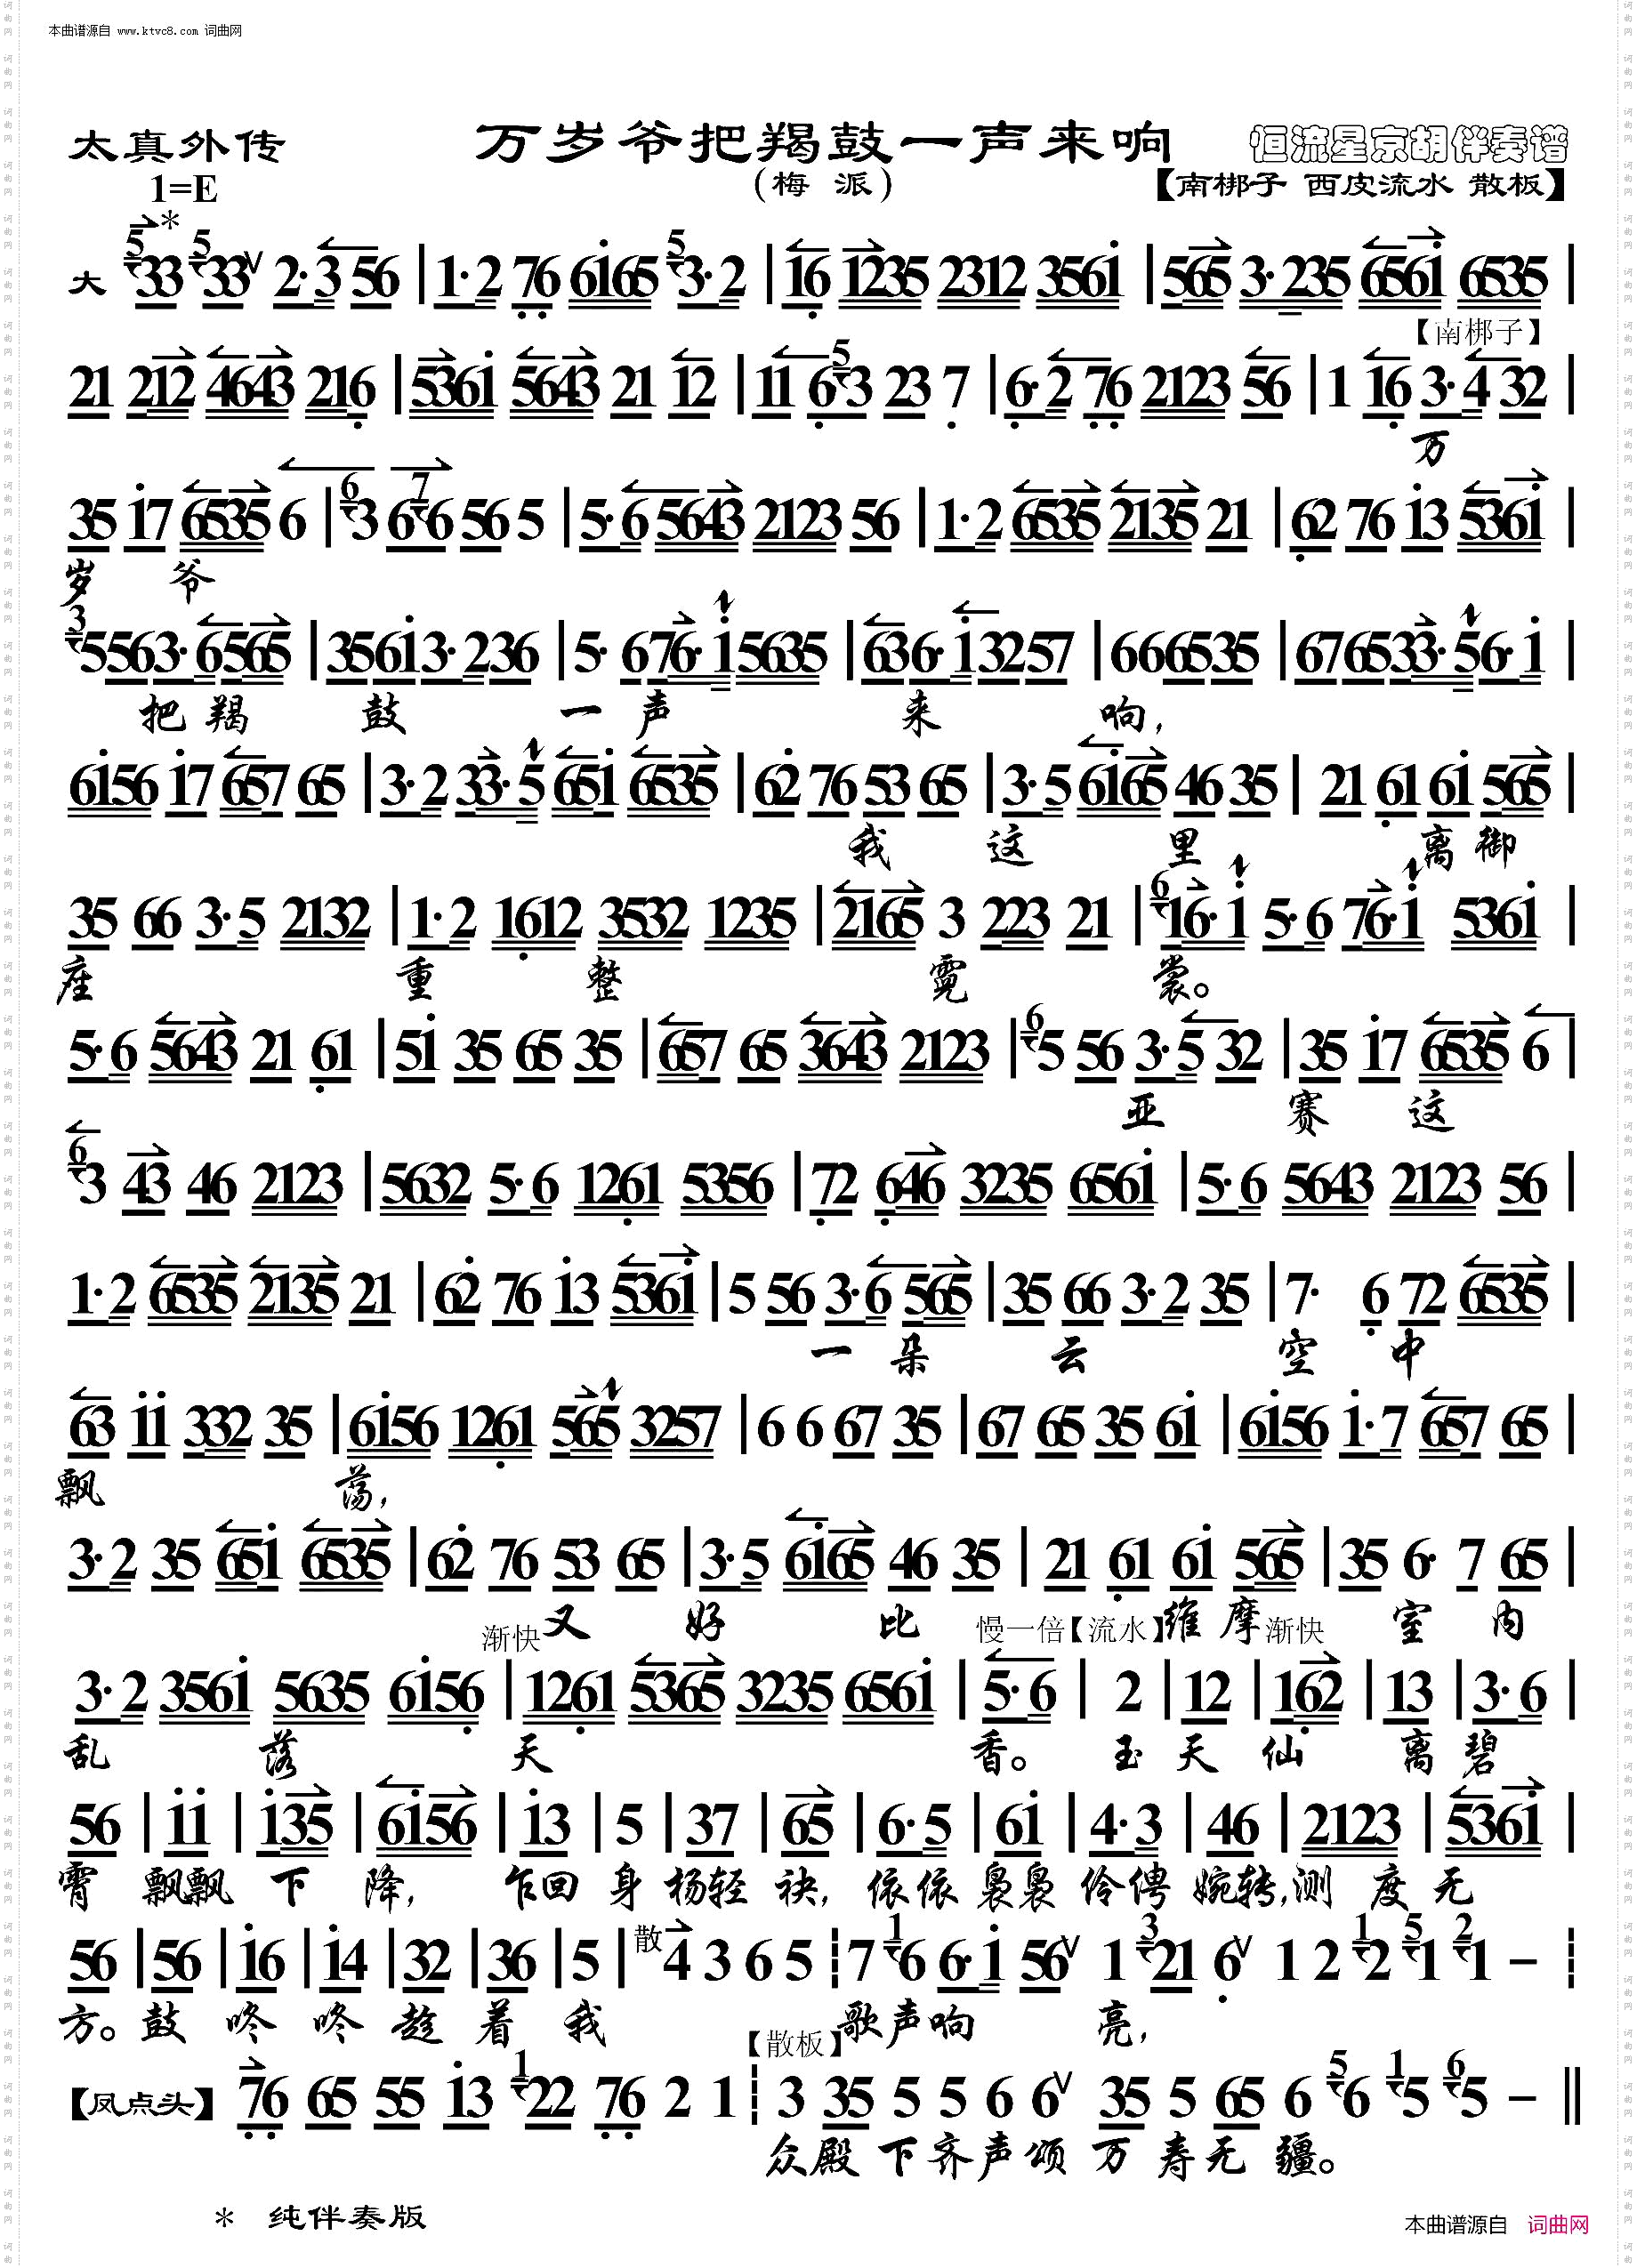 本曲谱源自 www.ktvc8.com 词曲网
太真外传 万岁爷把羯鼓一声来响 恒流星京胡伴奏谱
1=E (梅 派) 【南梆子 西皮流水 散板】
大 5 33 5 33 ∨ 2·3 56 | 1·2 76 6i65 5 3·2 | 16 1235 2312 356i | 565 3·235 656i 6535 |
【南梆子】
21 212 4643 216 | 536i 5643 21 12 | 11 6 5 3 23 7 | 6·2 76 2123 56 | 1 16 3·4 32 |
万
35 i7 6535 6 | 6 3 6 7 6 56 5 | 5·6 5643 2123 56 | 1·2 6535 2135 21 | 62 76 i3 536i |
岁 爷
3 5 56 3·6 565 | 35 6i 3·2 36 | 5· 6 76·i 5635 | 63 6·i 32 57 | 6 66 65 35 | 67 65 33·5 6·i |
把 羯 鼓 一 声 来 响,
6i56 i7 657 65 | 3·2 33·5 65i 6535 | 62 76 53 65 | 3·5 6i65 46 35 | 21 61 6i 565 |
我 这 里 离 御
35 66 3·5 2132 | 1·2 1612 3532 1235 | 2165 3 223 21 | 6 16·i 5·6 76·i 536i |
座 重 整 霓 裳。
5·6 5643 21 61 | 5i 35 65 35 | 657 65 3643 2123 | 6 5 56 3·5 32 | 35 i7 6535 6 |
亚 赛 这
6 3 43 46 2123 | 5632 5·6 1261 5356 | 72 646 3235 656i | 5·6 5643 2123 56 |
1·2 6535 2135 21 | 62 76 i3 536i | 5 56 3·6 565 | 35 66 3·2 35 | 7· 6 72 6535 |
一 朵 云 空 中
63 ii 332 35 | 6i56 1261 565 3257 | 6 6 67 35 | 67 65 35 6i | 6i56 i·7 657 65 |
飘 荡,
3·2 35 65i 6535 | 62 76 53 65 | 3·5 6i65 46 35 | 21 61 6i 565 | 35 6· 7 65 |
渐快 又 好 比 慢一倍【流水】维 摩 渐快 室 内
3·2 356i 5635 6i56 | 1261 5365 3235 656i | 5·6 | 2 | 12 | 162 | 13 | 3·6 |
乱 落 天 香。 玉 天 仙 离 碧
56 | ii | i35 | 6i56 | i3 | 5 | 37 | 65 | 6·5 | 6i | 4·3 | 46 | 2123 | 536i |
霄 飘飘 下 降, 乍回 身 杨轻 袂, 依依 袅袅 伶俜 婉转,测 度 无
56 | 56 | i6 | i4 | 32 | 36 | 5 | 散 4 3 6 5 ┊ 7 1 6 6·i 56 ∨ 1 3 21 6 ∨ 1 2 1 2 5 1 2 1 – ┊
方。鼓 咚 咚 趁 着 我 歌声响 亮,
【散板】
【凤点头】 76 65 55 i3 1 22 76 2 1 ┊ 3 35 5 5 6 6 ∨ 35 5 65 6 5 6 1 5 6 5 – ‖
众殿 下齐声颂 万 寿无 疆。
* 纯伴奏版
本曲谱源自 词曲网